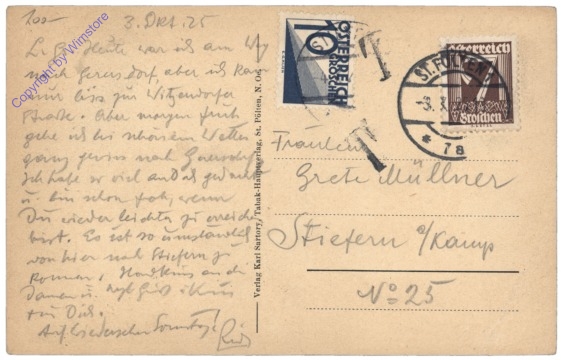 100-
3. Okt. 25
heute war ich am
nach Gerersdorf, aber ich kam
nur bis zur Witzendorfer
Straße. Aber morgen früh
gehe ich bei schönem Wetter
ganz gewiss nach Gerersdorf
Ich habe so viel an Dich gedacht
u. bin schon froh, wenn
Du wieder leichter zu erreichen
bist. Es ist so umständlich
von hier nach Stiefern zu
kommen. Handkuss an die
Damen u.
für Dich.
Auf Wiedersehen Sonntag!
Copyright by Wimstore
Verlag Karl Sartory, Tabak-Hauptverlag, St. Pölten, N.-Öst.
10
ÖSTERREICH
GROSCHEN
T
T
Österreich
7
Groschen
ST. PÖLTEN
* 7a
Fräulein
Grete Müllner
Stiefern a/Kamp
No 25